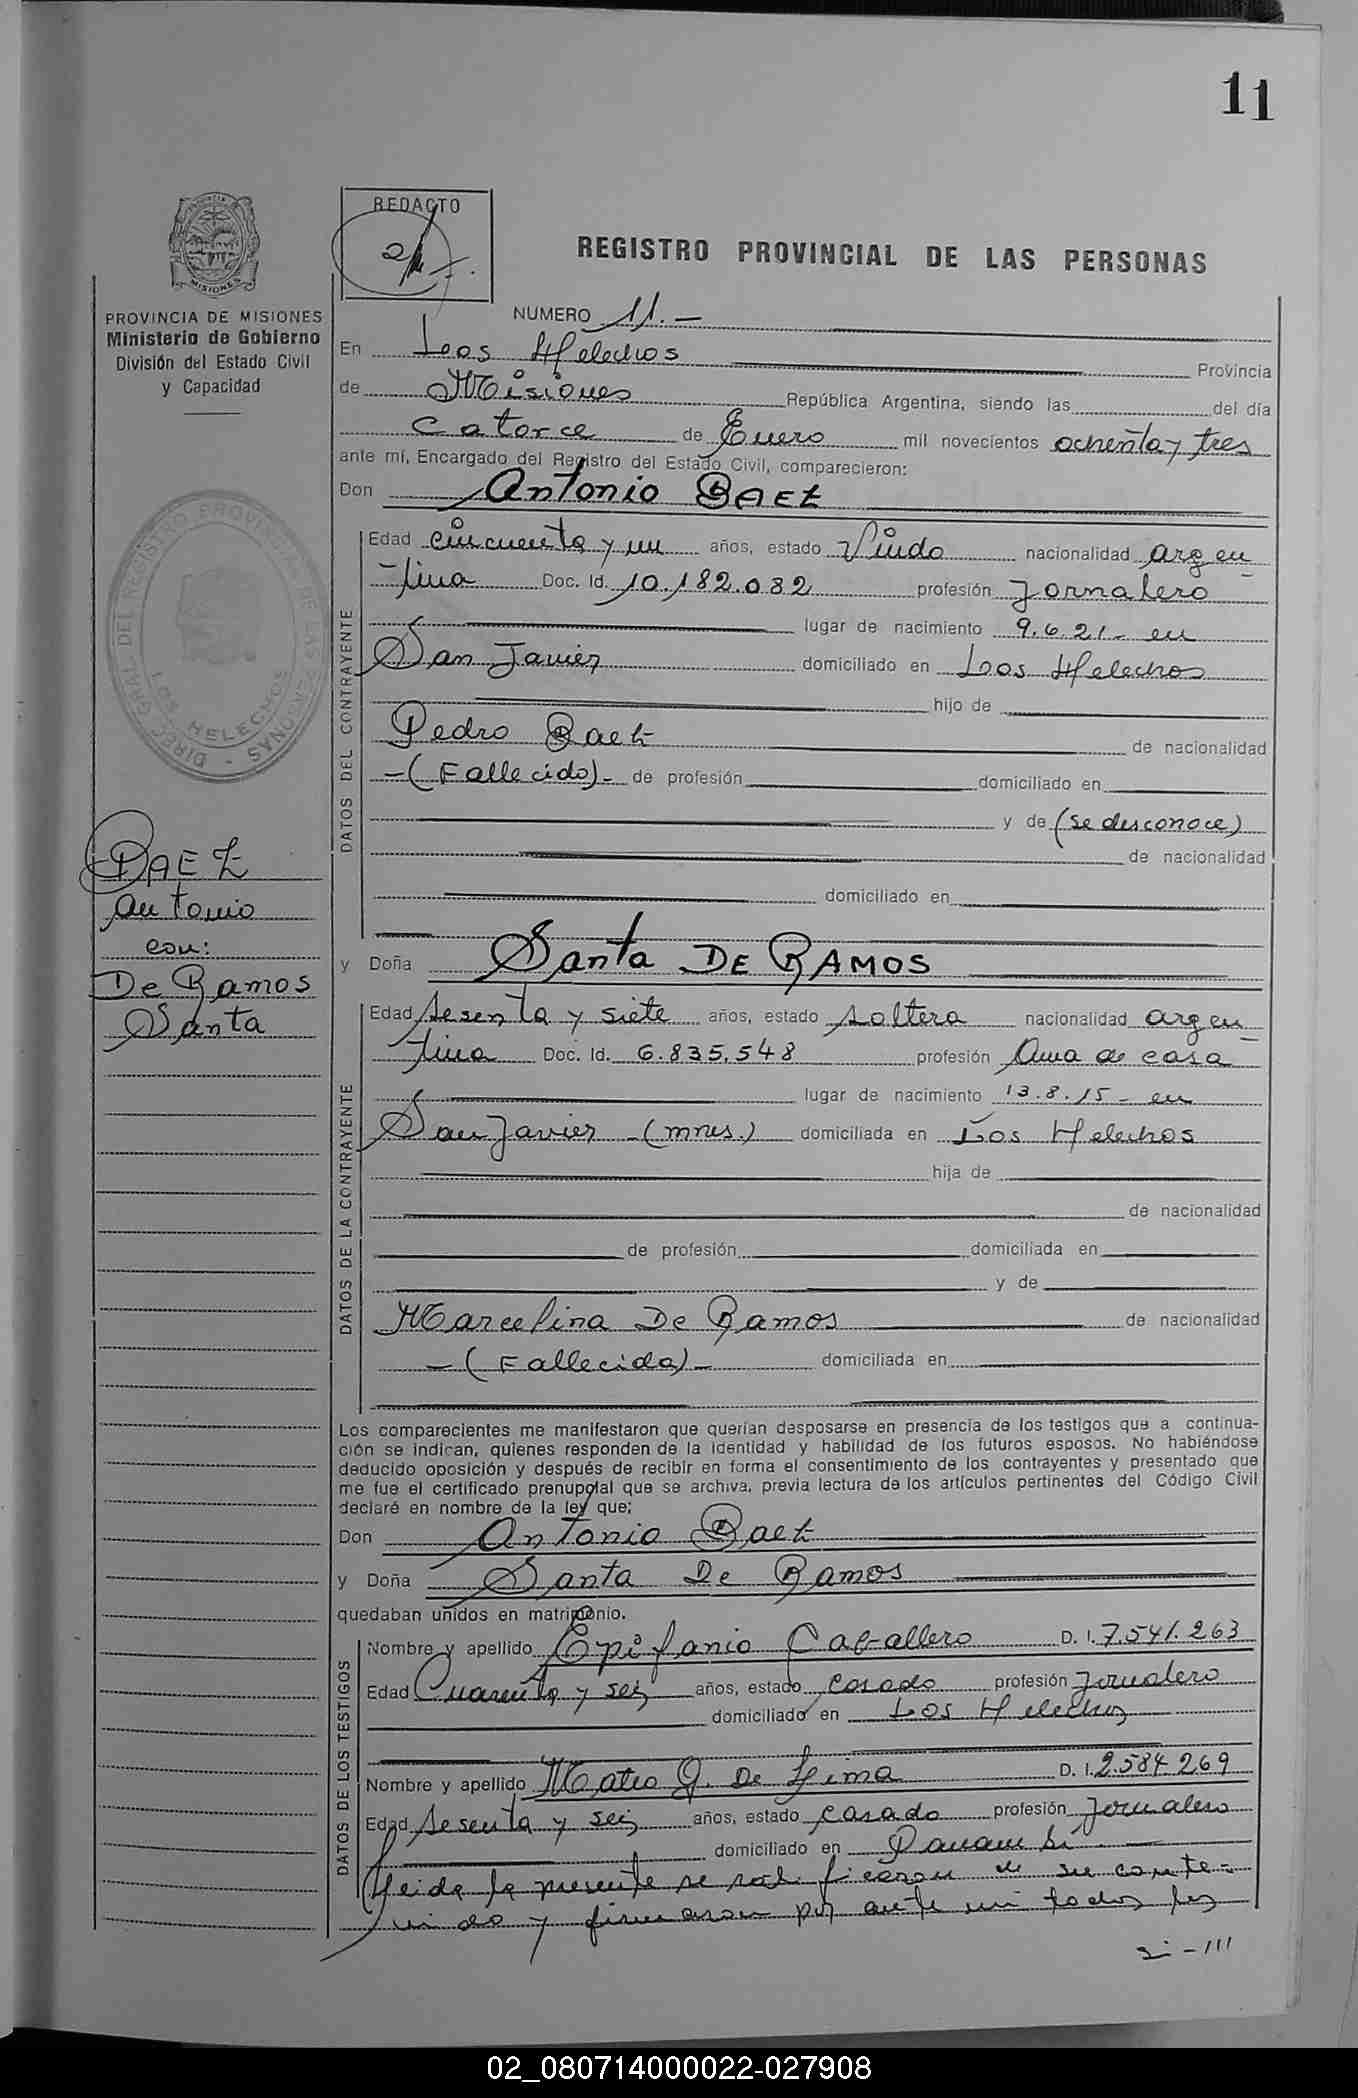 11
REDACTO
REGISTRO PROVINCIAL DE LAS PERSONAS
MISIONES
PROVINCIA DE MISIONES
Ministerio de Gobierno
División del Estado Civil
y Capacidad
NUMERO 11.-
En Los Helechos Provincia
de Misiones República Argentina, siendo las del día
Catorce de Enero mil novecientos ochenta y tres
ante mí, Encargado del Registro del Estado Civil, comparecieron:
Don Antonio BAEZ
DIREC. GRAL. DEL REGISTRO PROVINCIAL DE LAS PERSONAS -
LOS HELECHOS
BAEZ
Antonio
con:
De Ramos
Santa
DATOS DEL CONTRAYENTE
Edad cincuenta y un años, estado Viudo nacionalidad argen
tina Doc. Id. 10.182.082 profesión Jornalero
lugar de nacimiento 9.6.21- en
San Javier domiciliado en Los Helechos
hijo de
Pedro Baez de nacionalidad
-(Fallecido)- de profesión domiciliado en
y de (se desconoce)
de nacionalidad
domiciliado en
y Doña Santa DE RAMOS
DATOS DE LA CONTRAYENTE
Edad sesenta y siete años, estado soltera nacionalidad argen
tina Doc. Id. 6.835.548 profesión Ama de casa
lugar de nacimiento 13.8.15- en
San Javier -(mnes.) domiciliada en Los Helechos
hija de
de nacionalidad
de profesión domiciliada en
y de
Marcelina De Ramos de nacionalidad
-(Fallecida)- domiciliada en
Los comparecientes me manifestaron que querían desposarse en presencia de los testigos que a continua-
ción se indican, quienes responden de la identidad y habilidad de los futuros esposos. No habiéndose
deducido oposición y después de recibir en forma el consentimiento de los contrayentes y presentado que
me fue el certificado prenupcial que se archiva, previa lectura de los artículos pertinentes del Código Civil
declaré en nombre de la ley que:
Don Antonio Baez
y Doña Santa De Ramos
quedaban unidos en matrimonio.
DATOS DE LOS TESTIGOS
Nombre y apellido Epifanio Caballero D. I. 7.541.263
Edad Cuarenta y seis años, estado casado profesión Jornalero
domiciliado en Los Helechos
Nombre y apellido Mateo G. De Lima D. I. 2.584.269
Edad sesenta y seis años, estado casado profesión Jornalero
domiciliado en Panambí
Leida la presente se ratificaron de su conte-
nido y firmaron por ante mi todos los
02_080714000022-027908